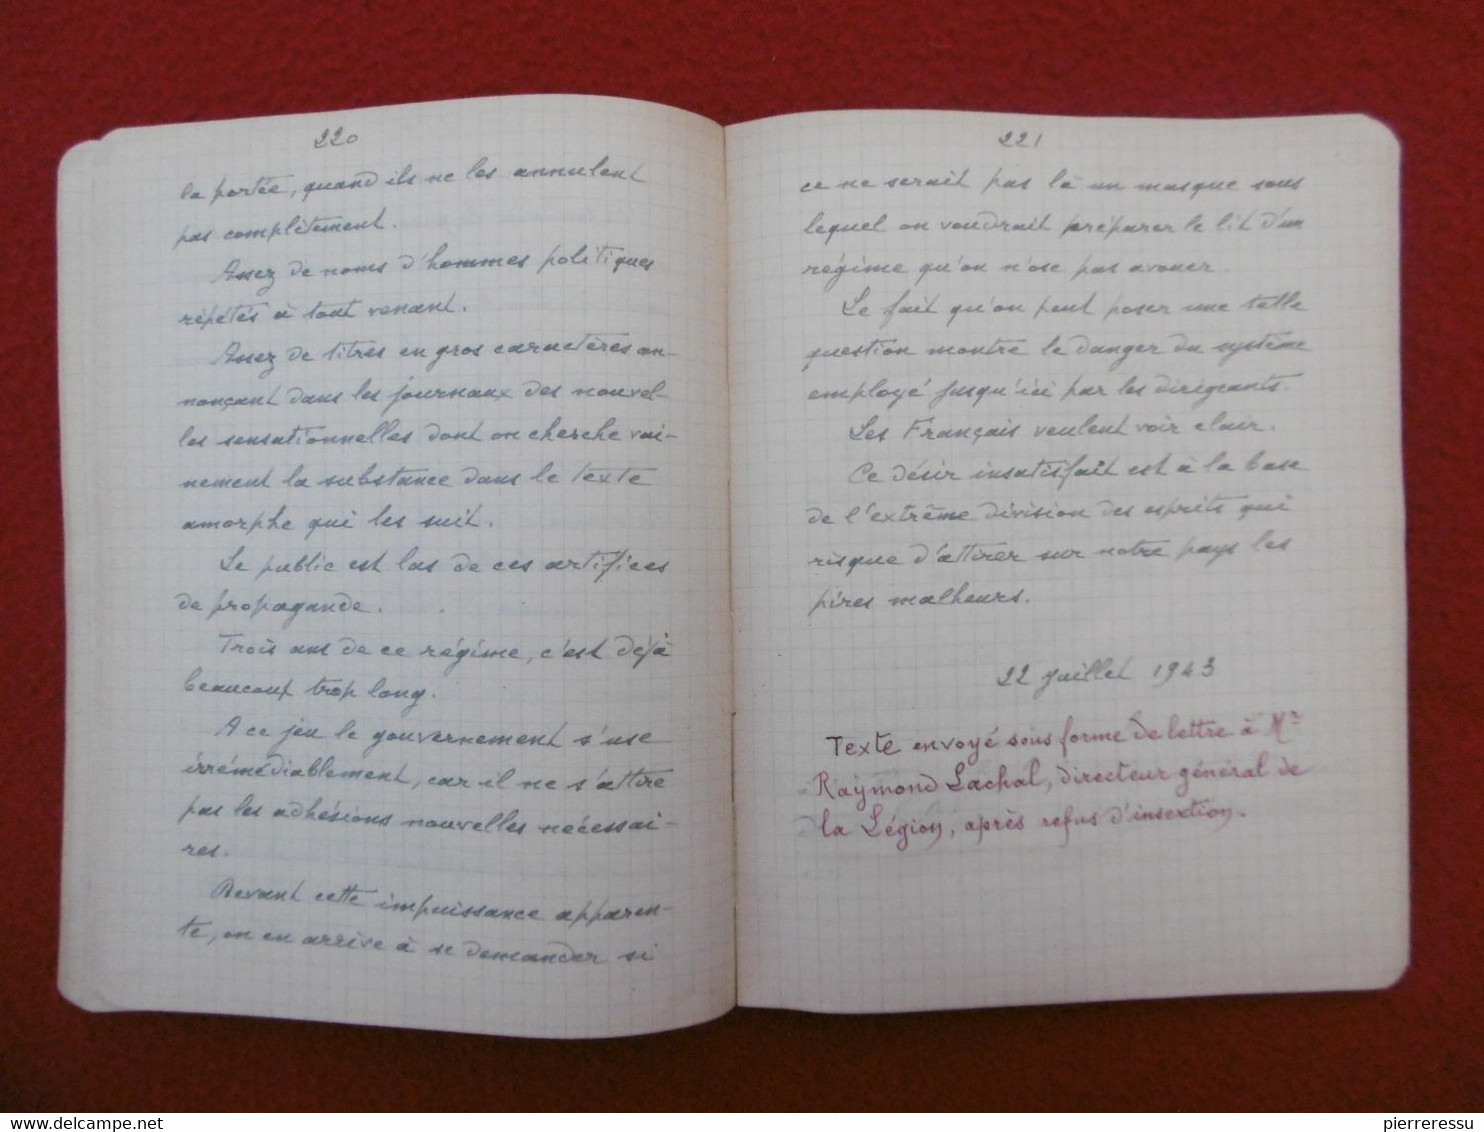 220
la portée, quand ils ne les annulent
pas complètement.
Assez de noms d'hommes politiques
répétés à tout venant.
Assez de titres en gros caractères an-
nonçant dans les journaux des nouvel-
les sensationnelles dont on cherche vai-
nement la substance dans le texte
amorphe qui les suit.
Le public est las de ces artifices
de propagande.
Trois ans de ce régime, c'est déjà
beaucoup trop long.
A ce jeu le gouvernement s'use
irrémédiablement, car il ne s'attire
pas les adhésions nouvelles nécessai-
res.
Devant cette impuissance apparen-
te, on en arrive à se demander si
221
ce ne serait pas là un masque sous
lequel on voudrait préparer le lit d'un
régime qu'on n'ose pas avouer.
Le fait qu'on peut poser une telle
question montre le danger du système
employé jusqu'ici par les dirigeants.
Les Français veulent voir clair.
Ce désir insatisfait est à la base
de l'extrême division des esprits qui
risque d'attirer sur notre pays les
pires malheurs.
22 juillet 1943
Texte envoyé sous forme de lettre à Mr
Raymond Lachal, directeur général de
la Légion, après refus d'insertion.
delcampe.net
pierreressu